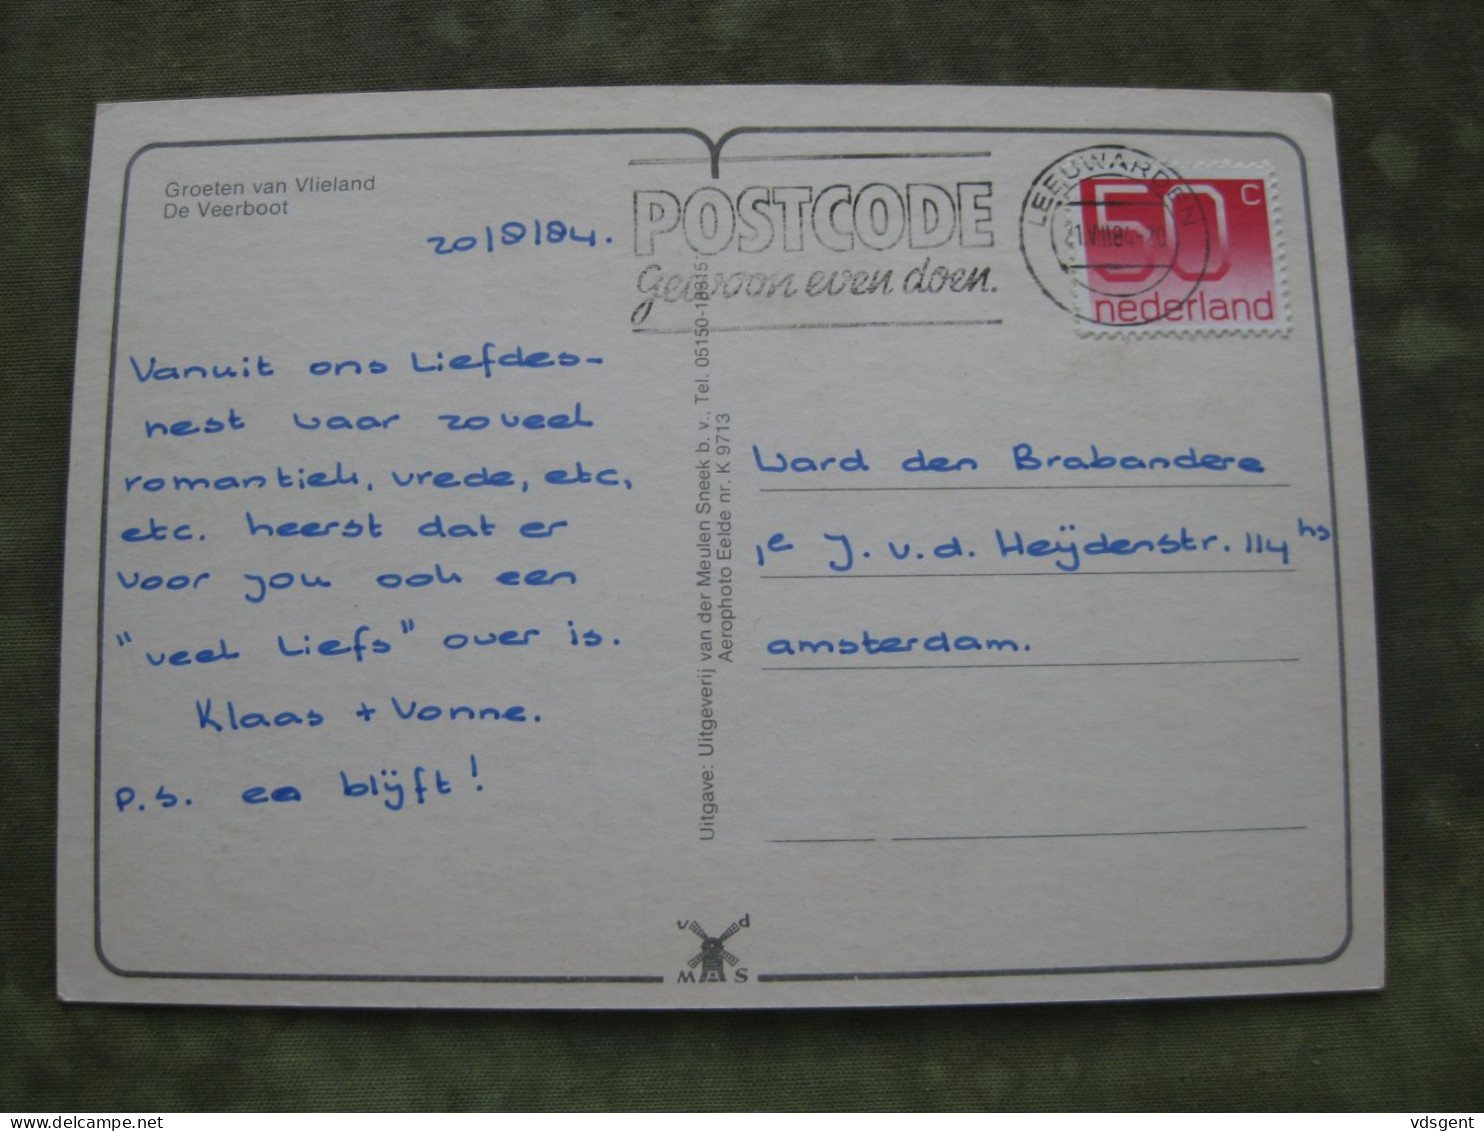 Groeten van Vlieland
De Veerboot
20/8/84.
POSTCODE
gewoon even doen.
LEEUWARDEN
21.VIII84-20
50 c
nederland
Vanuit ons Liefdes-
nest waar zoveel
romantiek, vrede, etc,
etc. heerst dat er
voor jou ook een
"veel Liefs" over is.
Klaas + Vonne.
P.S. ee blijft!
Uitgave: Uitgeverij van der Meulen Sneek b.v., Tel. 05150-18815
Aerophoto Eelde nr. K 9713
Ward den Brabandere
1e J. v.d. Heijdenstr. 114 hs
amsterdam.
v d
M S
delcampe.net
vdsgent